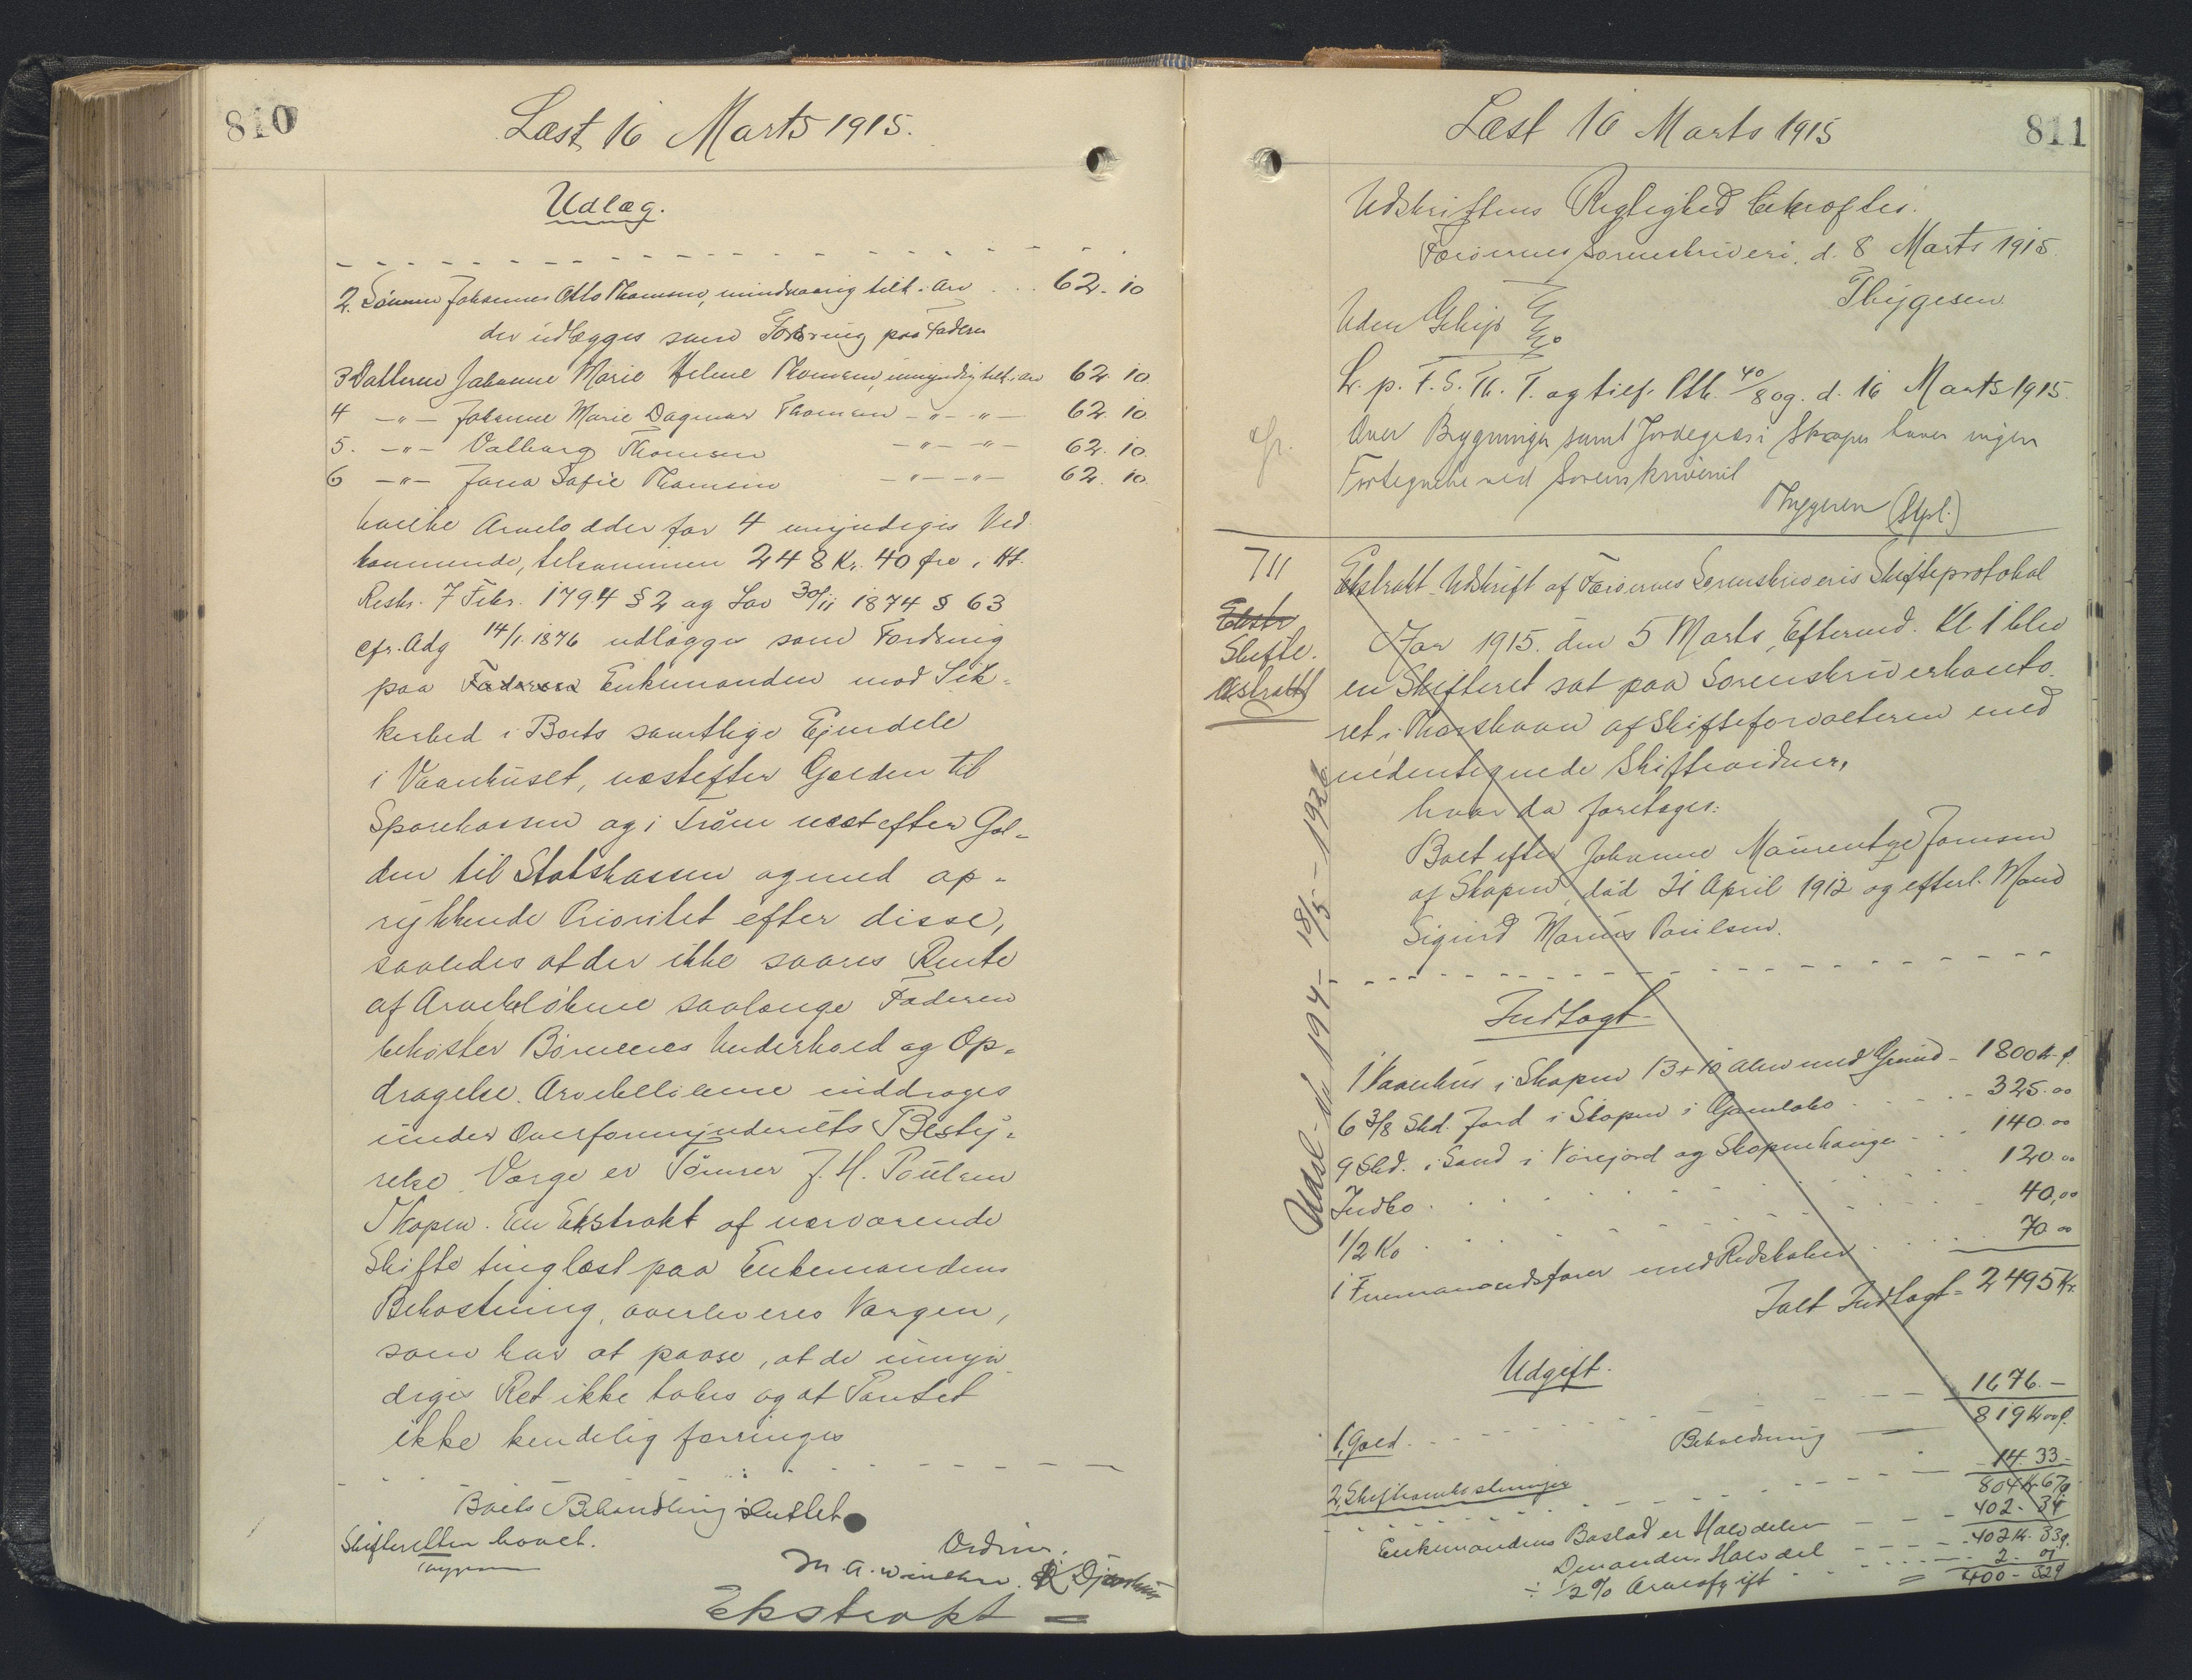 810
Læst 16 Marts 1915.
Udlæg.
2. Sønnen Johannes Otto Thomsen, mindreaarig tilk. Arv . . . 62. 10
der udlægges som Fordring paa Faderen
3 Datteren Johanne Marie Helene Thomsen, umyndig tilk. Arv 62. 10.
4 -"- Johanne Marie Dagmar Thomsen -"- -"- 62. 10
5. -"- Valborg Thomsen -"- -"- 62. 10.
6 -"- Jana Sofie Thomsen -"- -"- 62. 10.
hvilke Arvelodder for 4 umyndiges Ved-
kommende, tilsammen 248 Kr. 40 Øre, i Hf.
Reskr. 7 Febr. 1794 § 2 og Lov 30/11 1874 § 63
cfr. Adg 14/1 1876 udlægges som Fordring
paa Faderen Enkemanden mod Sik-
kerhed i Boets samtlige Ejendele
i Vaanhuset, næstefter Gælden til
Sparekassen og i Trøm næst efter Gæl-
den til Statskassen og med op-
rykkende Prioritet efter disse,
saaledes at der ikke svares Rente
af Arvebeløbene saalænge Faderen
bekoster Børnenes Underhold og Op-
dragelse. Arvebeløbene inddrages
under Overformynderiets Besty-
relse. Værge er Tømrer J. H. Poulsen
Skopen. En Ekstrakt af nærværende
Skifte tinglæst paa Enkemandens
Bekostning, overleveres Værgen,
som har at paase, at de umyn-
diges Ret ikke tabes og at Pantet
ikke kendelig forringes
Boets Behandling sluttet
Skifteretten hævet.
Thygesen
M. A. Winther.
Ekstrakt =
Læst 16 Marts 1915
811
Udskriftens Rigtighed bekræftes.
Færøernes Sorenskriveri, d. 8 Marts 1915.
Thygesen
Uden Gebyr
L. p. F. S. Th. T. og tilf. Ptk. 40/809. d. 16 Marts 1915.
Over Bygninger samt Jordegods i Skopen haves ingen
Fortegnelse ved Sorenskriveriet
Thygesen (Stpl.)
711
Ekstr
Skifte.
ekstrakt
Ekstrakt-Udskrift af Færøernes Sorenskriveris Skifteprotokol
Aar 1915. den 5 Marts, Eftermd. Kl 1 blev
en Skifteret sat paa Sorenskriverkonto-
ret i Thorshavn af Skifteforvalteren med
undertegnede Skiftevidner,
hvor da foretages:
Boet efter Johanne Maurentze Joensen
af Skopen, død 21 April 1912 og efterl. Mand
Sigurd Marius Poulsen.
Udsl. 18/5 - 1926
Indtægt.
1 Vaanhus i Skopen 13 + 10 Alen med Grund - 1800 Kr. Ø.
6 3/8 Skd. Jord i Skopen i Gamlabø . . . 325. 00
9 Skd. i Sand i Vørejord og Skopnehauge . . . 140. 00
Indbo . . . 120. 00
1/2 Ko . . . 40,00
1 Firemandsfarer med Redskaber . . . 70. 00
Ialt Indtægt = 2495 Kr.
Udgift.
1, Gæld. - - - 1676. -
Beholdning — 819 Kr 00 Ø.
2, Skifteomkostninger - - - 14. 33 -
804 Kr 67 Ø
Enkemandens Boslod er Halvdelen - - - 402. 34
Den anden Halvdel - - - 402 Kr. 33 Ø.
÷ 1/2 % Arveafgift . . . 2. 01
= 400 - 32 Ø